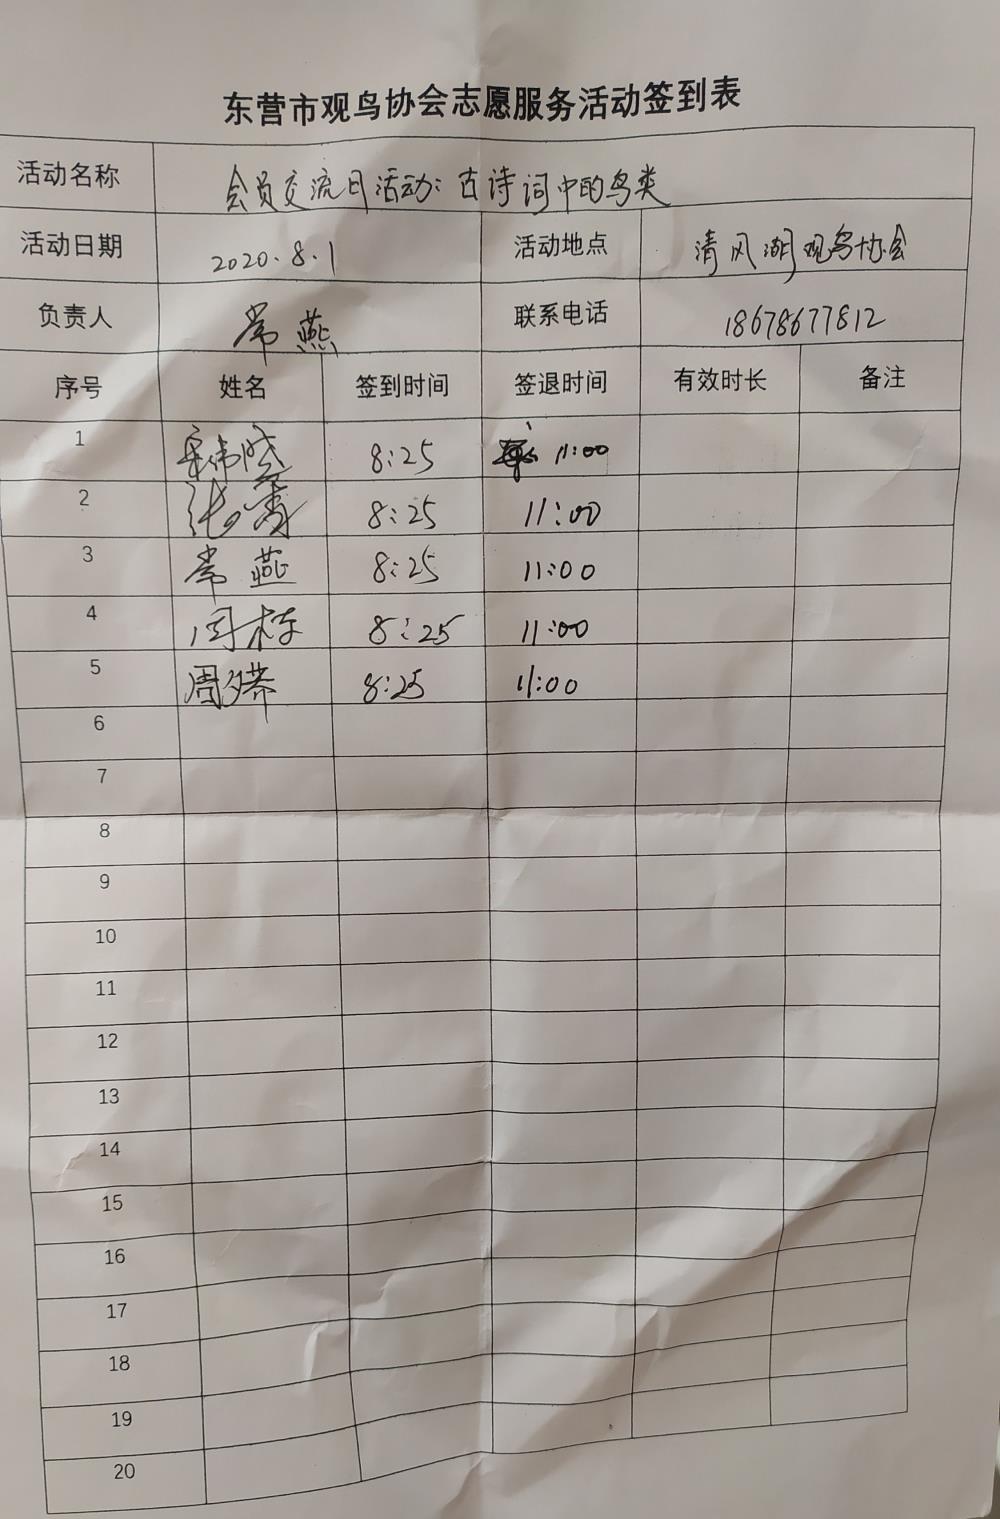 东营市观鸟协会志愿服务活动签到表
活动名称 会员交流日活动：古诗词中的鸟类
活动日期 2020.8.1 活动地点 清风湖观鸟协会
负责人 常燕 联系电话 18678677812
序号 姓名 签到时间 签退时间 有效时长 备注
1 8:25 11:00
2 张 8:25 11:00
3 常燕 8:25 11:00
4 周栋 8:25 11:00
5 周 8:25 11:00
6
7
8
9
10
11
12
13
14
15
16
17
18
19
20